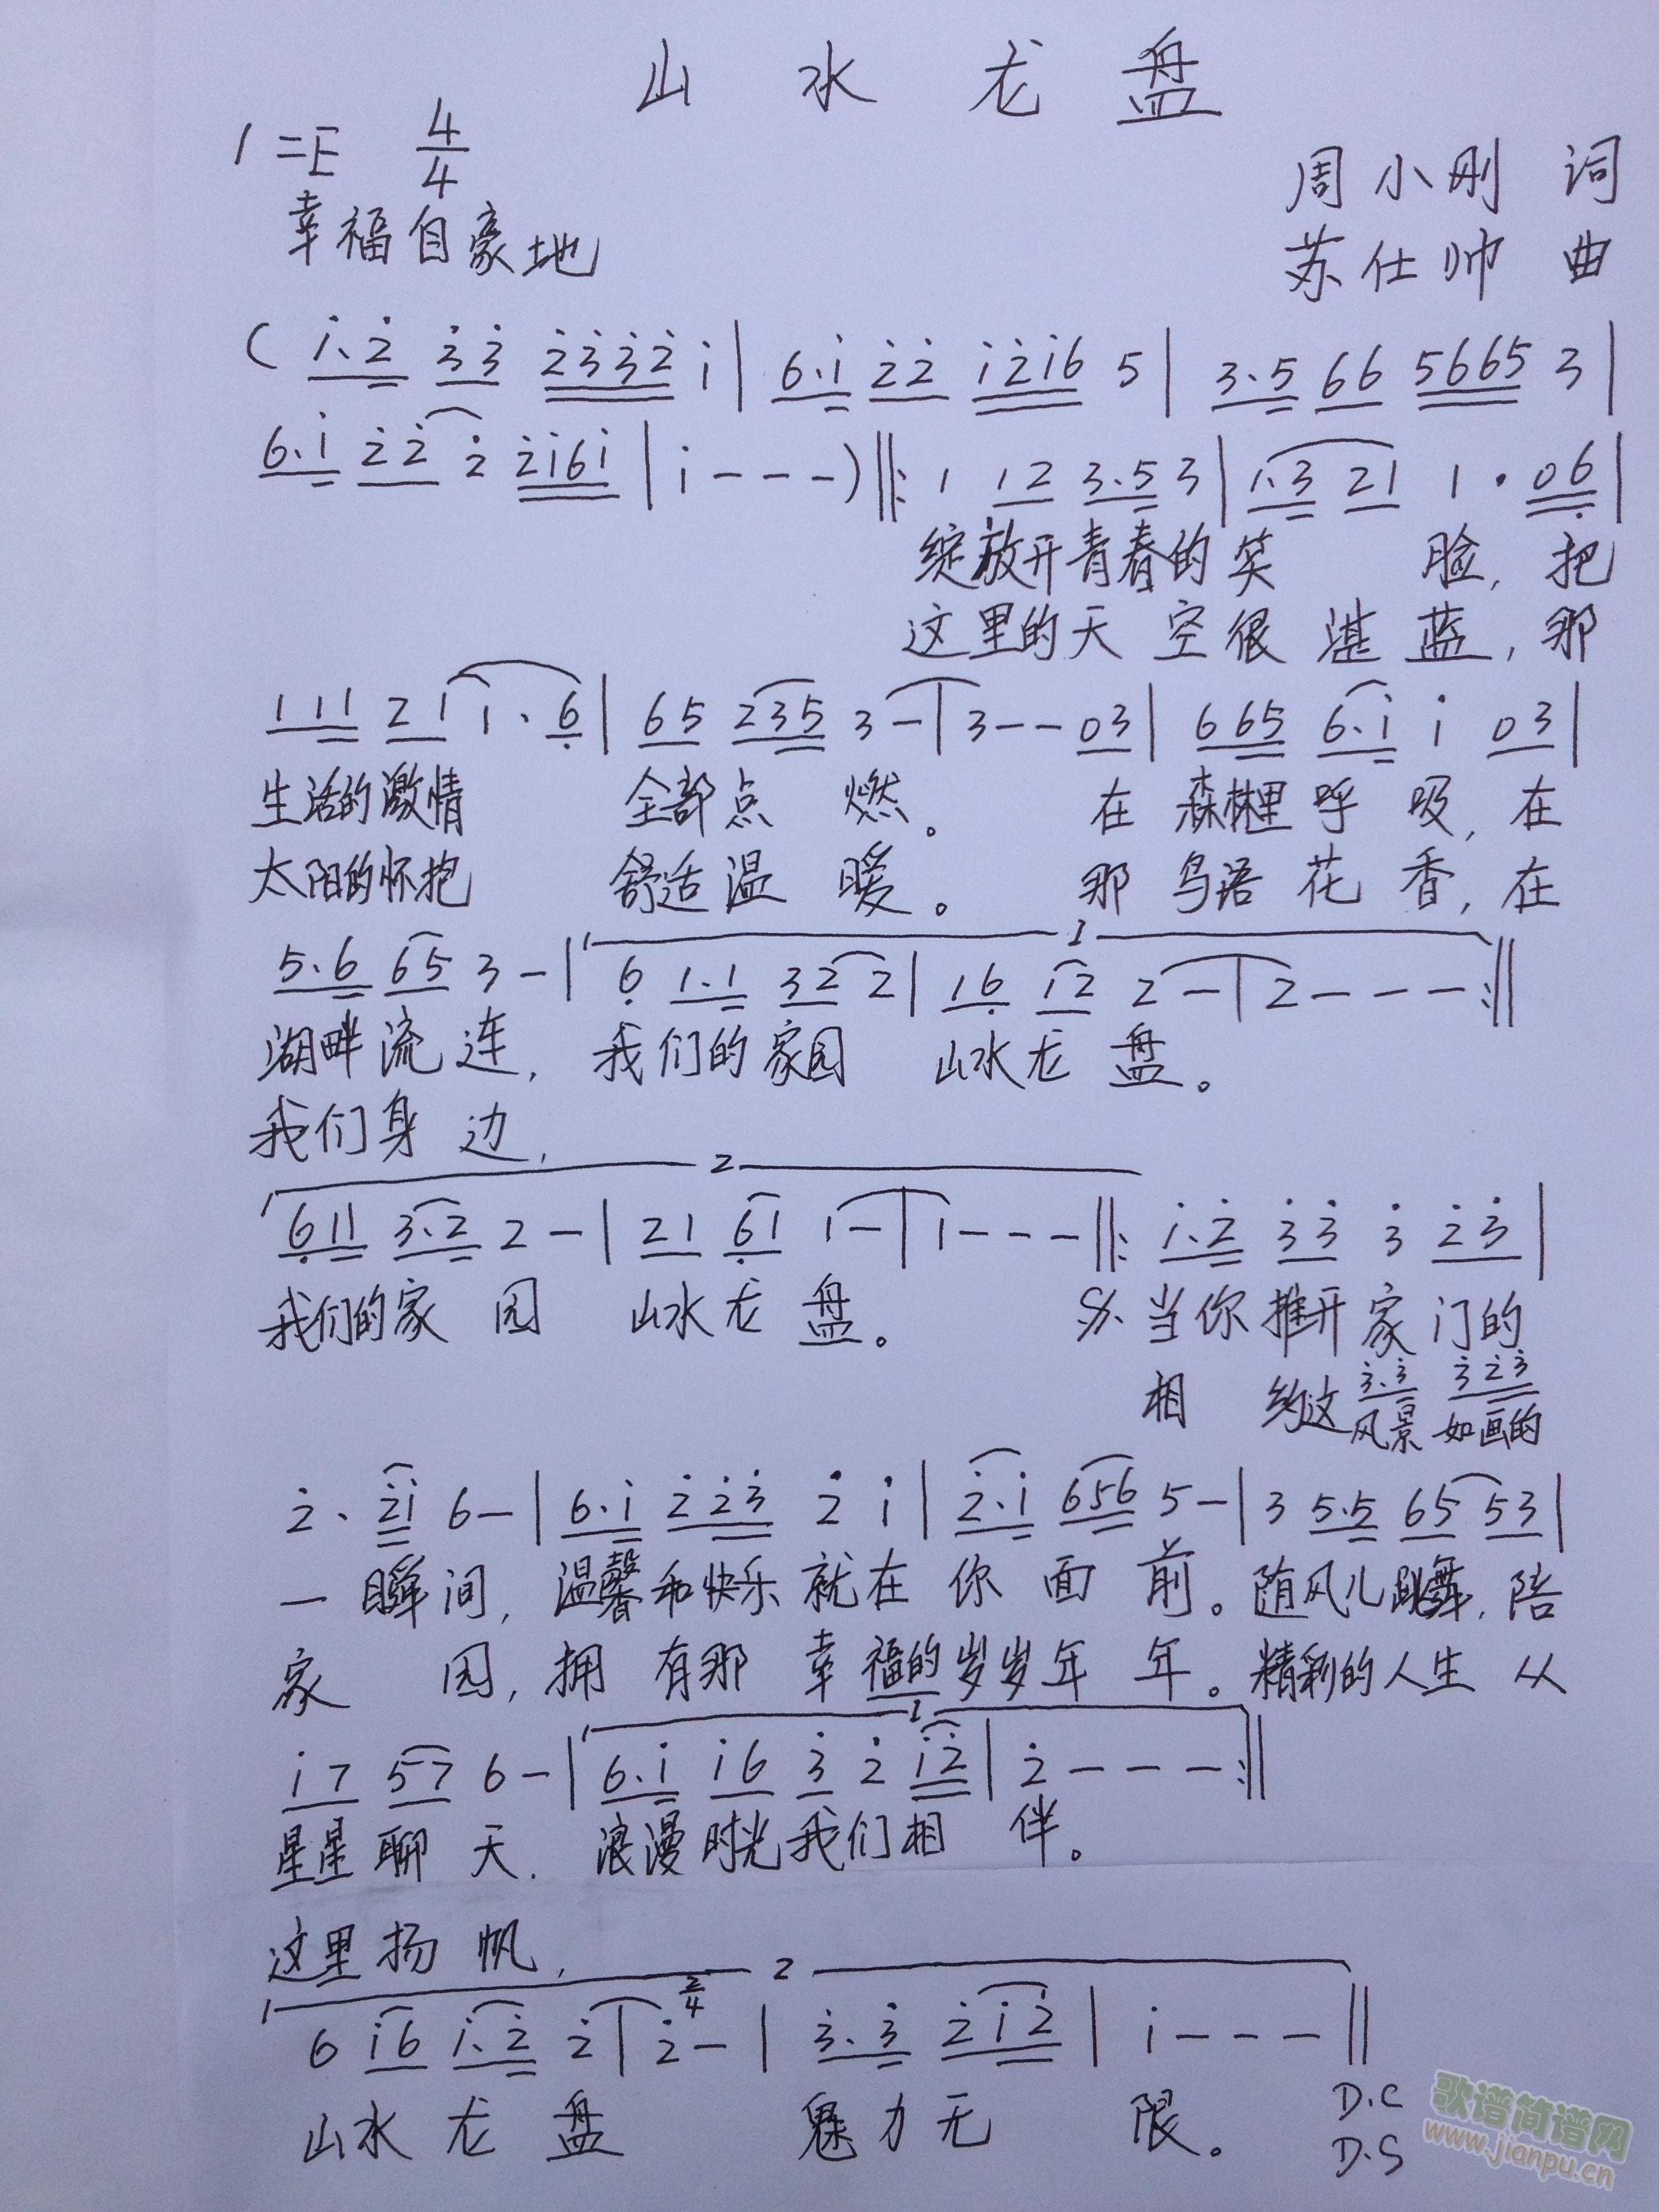 山水龙盘
1=E 4/4
周小刚 词
幸福自豪地
苏仕帅 曲
( i.2 33 2332 i | 6.i 22 i2i6 5 | 3.5 66 5665 3 |
6.i 22 2 2i6i | i - - - ) ||: 1 12 3.5 3 | 1.3 21 1 . 06 |
绽放开青春的笑 脸, 把
这里的天 空很 湛 蓝, 那
111 21 1 . 6 | 65 235 3 - | 3 - - 03 | 665 6.i i 03 |
生活的激情 全部点 燃。 在 森林里呼 吸, 在
太阳的怀抱 舒适温 暖。 那 鸟语 花 香, 在
5.6 65 3 - | 6 1.1 32 2 | 16 12 2 - | 2 - - - :||
1
湖畔流连, 我们的家园 山水龙 盘。
我们身 边,
2
611 3.2 2 - | 21 61 1 - | 1 - - - ||: i.2 33 3 23 |
我们的家 园 山水龙 盘。 当你推开家 门的
3.3 323
相 约这风景如画的
2 . 2i 6 - | 6.i 223 2 i | 2.i 656 5 - | 3 5.5 65 53 |
一 瞬 间, 温馨和快乐 就在 你 面 前。随风儿跳舞, 陪
家 园, 拥 有那 幸 福的岁岁年 年。精彩的人生 从
1
i7 57 6 - | 6.i i6 3 2 i2 | 2 - - - :||
星星 聊 天. 浪漫时光我们相 伴。
这里扬 帆,
2
6 i6 i.2 2 | 2/4 2 - | 3.3 2i2 | i - - - ||
山水 龙 盘 魅力无 限。 D.C
D.S
歌谱简谱网
www.jianpu.cn